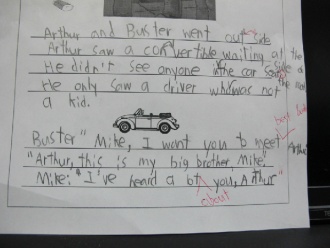 Arthur and Buster went out side
Arthur saw a convertible waiting at the side of the road
He didn't see anyone in the car Seat
He only saw a driver who was not
a kid.
Buster" Mike, I want you to meet Arthur"
"Arthur, this is my big brother Mike."
Mike: "I've heard a lot about you, Arthur"